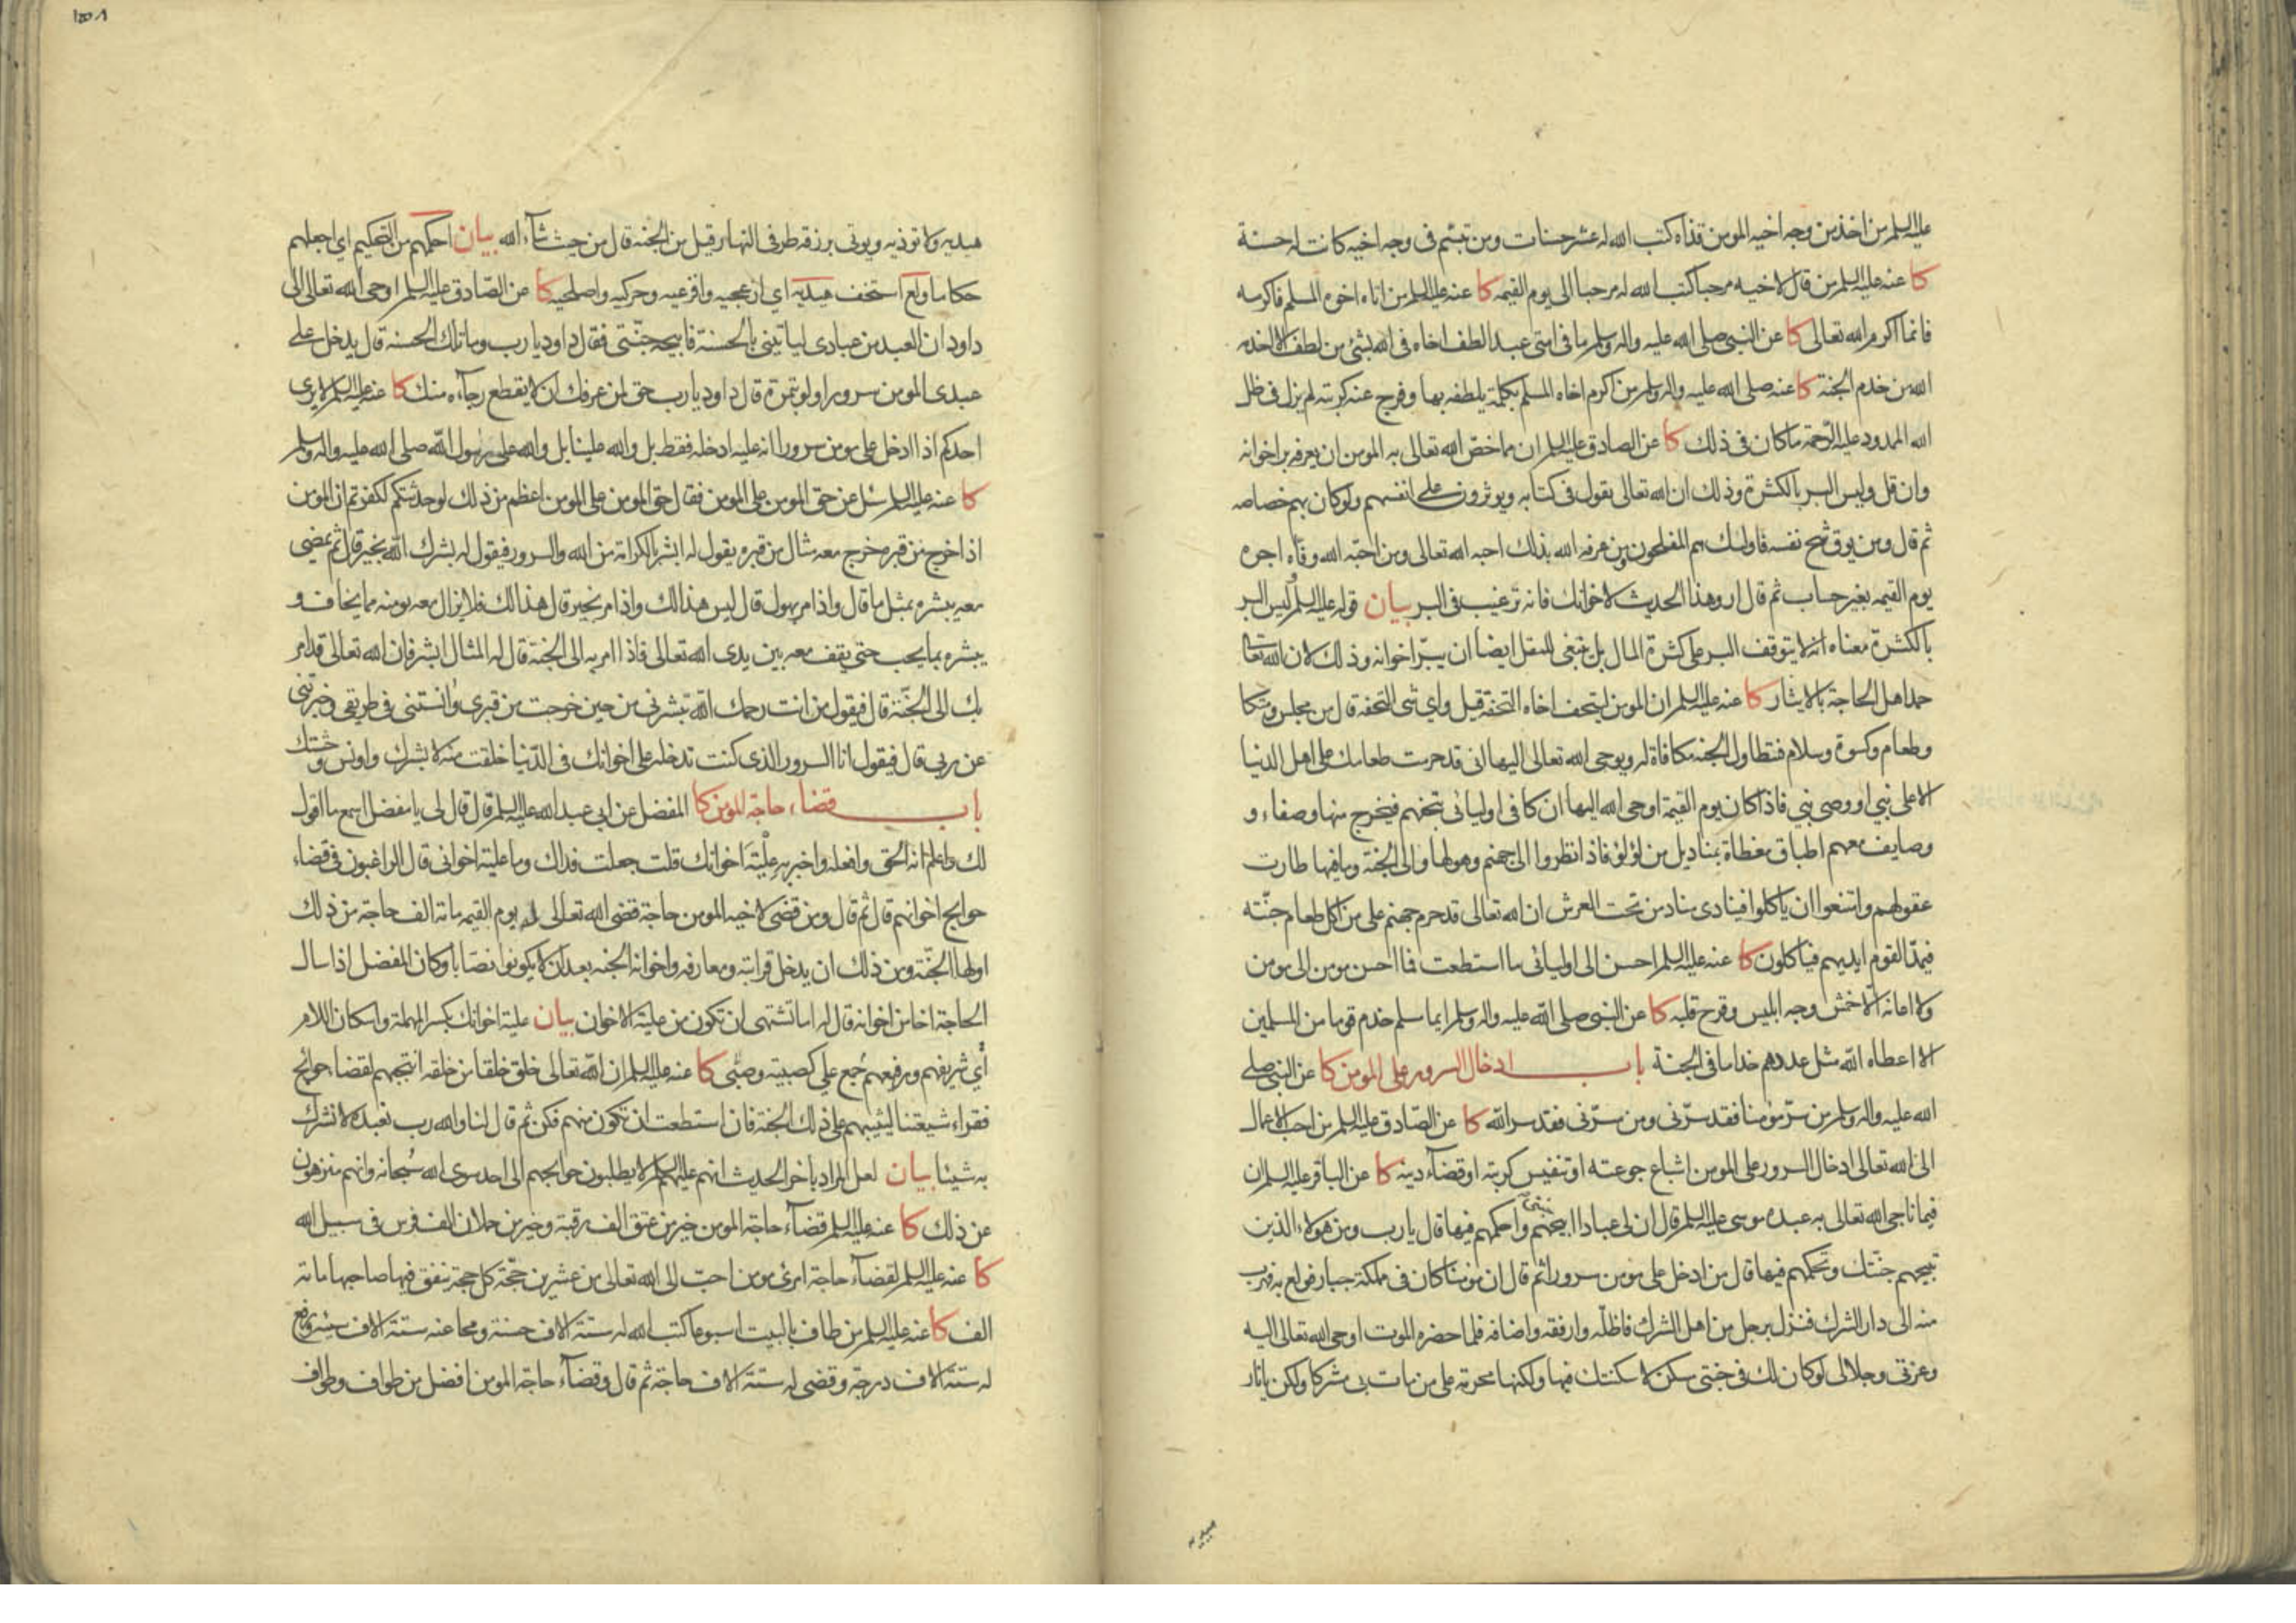 عليه السلم من اخذ من وجه اخيه المومن قذاه كتب الله له عشر حسنات ومن تبسم فى وجه اخيه كانت له حسنة
كا عنه عليه السلم من قال لاخيه مرحبا كتب الله له مرحبا الى يوم القيمه كا عنه عليه السلم من اتاه اخوه المسلم فاكرمه
فانما اكرم الله تعالى كا عن النبى صلى الله عليه واله وسلم ما فى امتى عبد الطف اخاه فى الله بشئ من لطف الا اخدمه
الله من خدم الجنة كا عنه صلى الله عليه واله وسلم من اكرم اخاه المسلم بكلمة يلطفه بها وفرج عنه كربته لم يزل فى ظل
الله الممدود عليه الرحمة ما كان فى ذلك كا عن الصادق عليه السلم ان مما خص الله تعالى به المومن ان يعرفه بر اخوانه
وان قل وليس البر بالكثرة وذلك ان الله تعالى يقول فى كتابه ويوثرون على انفسهم ولو كان بهم خصاصه
ثم قال ومن يوق شح نفسه فاولئك هم المفلحون ومن عرفه الله بذلك احبه الله تعالى ومن احبه الله وفاه اجره
يوم القيمه بغير حساب ثم قال ارو هذا الحديث لاخوانك فانه ترغيب فى البر بيان قوله عليه السلم ليس البر
بالكثرة معناه انه لا يتوقف البر على كثرة المال بل ينبغى للمقل ايضا ان يبر اخوانه وذلك لان الله تعالى
حمد اهل الحاجة بالايثار كا عنه عليه السلم ان المومن ليتحف اخاه التحفة قيل واى شى التحفة قال من مجلس ومتكا
وطعام وكسوة وسلام فتطاول الجنه مكافاة له ويوحى الله تعالى اليها انى قد حرمت طعامك على اهل الدنيا
الا على نبي او وصى نبي فاذا كان يوم القيمة اوحى الله اليها ان كافى اوليائى بتحفهم فيخرج منها وصفاء و
وصايف معهم اطباق مغطاة بمناديل من لؤلؤ فاذا نظروا الى جهنم وهولها والى الجنة وما فيها طارت
عقولهم وامتنعوا ان ياكلوا فينادى مناد من تحت العرش ان الله تعالى قد حرم جهنم على من اكل طعام جنته
فيمد القوم ايديهم فياكلون كا عنه عليه السلم احسن الى اوليائى ما استطعت فما احسن مومن الى مومن
ولا اعانه الا خمش وجه ابليس وقرح قلبه كا عن النبى صلى الله عليه واله وسلم ايما مسلم خدم قوما من المسلمين
الا اعطاه الله مثل عددهم خداما فى الجنة باب ادخال السرور على المومن كا عن النبى صلى
الله عليه واله وسلم من سر مؤمنا فقد سرنى ومن سرنى فقد سر الله كا عن الصادق عليه السلم من احب الاعمال
الى الله تعالى ادخال السرور على المومن اشباع جوعته او تنفيس كربته او قضاء دينه كا عن الباقر عليه السلم ان
فيما ناجى الله تعالى به عبده موسى عليه السلم قال ان لى عبادا ابيحهم جنتى واحكمهم فيها قال يا رب ومن هولاء الذين
تبيحهم جنتك وتحكمهم فيها قال من ادخل على مومن سرورا ثم قال ان مومنا كان فى مملكة جبار فولع به فهرب
منه الى دار الشرك فنزل برجل من اهل الشرك فاظله وارفقه واضافه فلما حضره الموت اوحى الله تعالى اليه
وعزتى وجلالى لو كان لك فى جنتى مسكن لاسكنتك فيها ولكنها محرمة على من مات بى مشركا ولكن يا نار
هيديه
١٥٨
هيديه ولا توذيه ويوتى برزقه طرفى النهار قيل من الجنه قال من حيث شاء الله بيان احكمهم من التحكيم اى اجعلهم
حكاما ولع استخف هيديه اى ازعجيه وافزعيه وحركيه واصلحيه كا عن الصادق عليه السلم اوحى الله تعالى الى
داود ان العبد من عبادى لياتينى بالحسنة فابيحه جنتى فقال داود يا رب وما تلك الحسنة قال يدخل على
عبدى المومن سرورا ولو بتمرة قال داود يا رب حق لمن عرفك ان لا يقطع رجاءه منك كا عنه عليه السلم لا يرى
احدكم اذا ادخل على مومن سرورا انه عليه ادخله فقط بل والله علينا بل والله على رسول الله صلى الله عليه واله وسلم
كا عنه عليه السلم سئل عن حق المومن على المومن فقال حق المومن على المومن اعظم من ذلك لو حدثتكم لكفرتم ان المومن
اذا خرج من قبره خرج معه مثال من قبره يقول له ابشر بالكرامة من الله والسرور فيقول له بشرك الله بخير قال ثم يمضى
معه يبشره بمثل ما قال واذا مر بهول قال ليس هذا لك واذا مر بخير قال هذا لك فلا يزال معه يومنه مما يخاف و
يبشره بما يحب حتى يقف معه بين يدى الله تعالى فاذا امر به الى الجنة قال له المثال ابشر فان الله تعالى قد امر
بك الى الجنة قال فيقول من انت رحمك الله تبشرنى من حين خرجت من قبرى وانستنى فى طريقى وخبرتنى
عن ربى قال فيقول انا السرور الذى كنت تدخله على اخوانك فى الدنيا خلقت منه لابشرك واونس وحشتك
باب قضاء حاجة المومن كا المفضل عن ابى عبد الله عليه السلم قال قال لى يا مفضل اسمع ما اقول
لك واعلم انه الحق وافعله واخبر به علية اخوانك قلت جعلت فداك وما علية اخوانى قال الراغبون فى قضاء
حوايج اخوانهم قال ثم قال ومن قضى لاخيه المومن حاجة قضى الله تعالى له يوم القيمه مائة الف حاجة من ذلك
اولها الجنة ومن ذلك ان يدخل قرابته ومعارفه واخوانه الجنه بعد ان لا يكونوا نصابا وكان المفضل اذا سال
الحاجة اخا من اخوانه قال له اما تشتهى ان تكون من علية الاخوان بيان علية اخوانك بكسر المهملة واسكان اللام
اي شريفهم ورفيعهم جمع علي كصبية وصبى كا عنه عليه السلم ان الله تعالى خلق خلقا من خلقه انتجبهم لقضاء حوائج
فقراء شيعتنا ليثيبهم على ذلك الجنة فان استطعت ان تكون منهم فكن ثم قال لنا والله رب نعبده لا نشرك
به شيئا بيان لعل المراد باخر الحديث انهم عليهم السلم لا يطلبون حوايجهم الى احد سوى الله سبحانه وانهم منزهون
عن ذلك كا عنه عليه السلم قضاء حاجة المومن خير من عتق الف رقبة وخير من حملان الف فرس فى سبيل الله
كا عنه عليه السلم لقضاء حاجة امرئ مومن احب الى الله تعالى من عشرين حجة كل حجة ينفق فيها صاحبها مائة
الف كا عنه عليه السلم من طاف بالبيت اسبوعا كتب الله له ستة الاف حسنة ومحا عنه ستة الاف سيئة ورفع
له ستة الاف درجة وقضى له ستة الاف حاجة ثم قال وقضاء حاجة المومن افضل من طواف وطواف